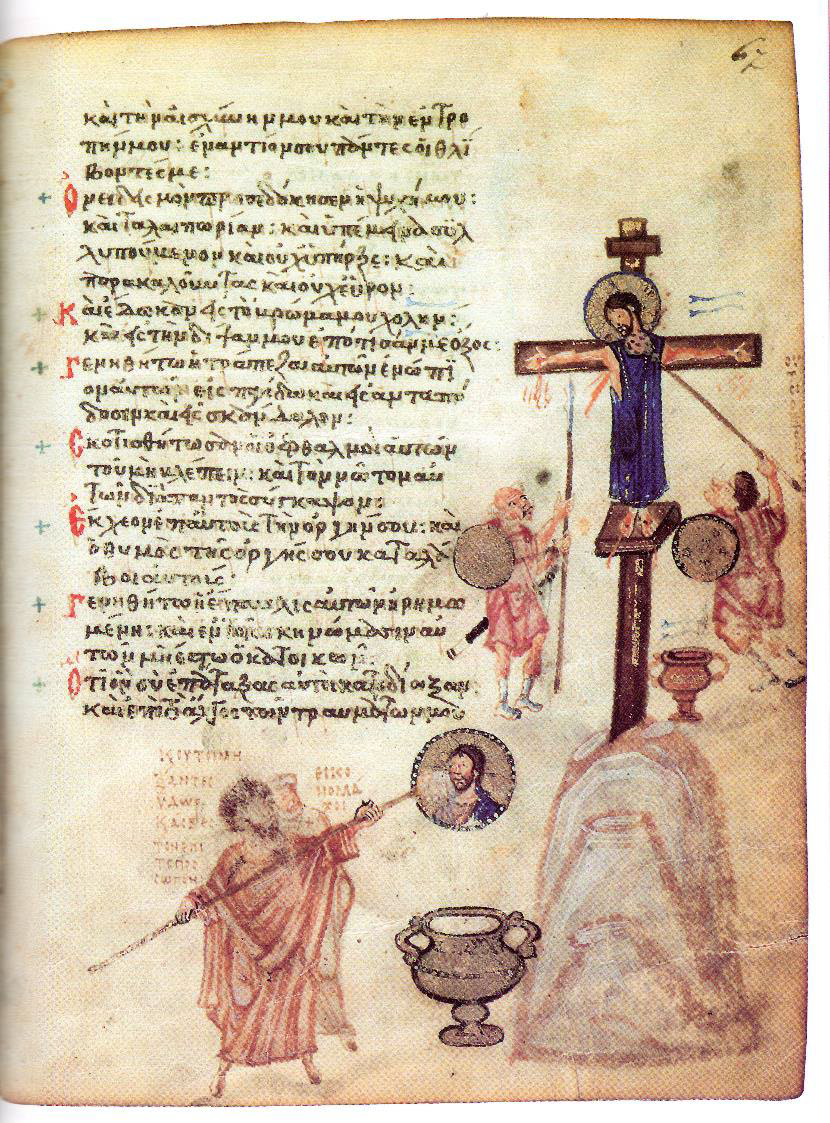 67
καὶ τὴν αἰσχύνην μου καὶ τὴν ἐντρο
πήν μου: ἐναντίον σου πάντες οἱ θλί
βοντές με:
Ὀνειδισμὸν προσεδόκησεν ἡ ψυχή μου:
καὶ ταλαιπωρίαν: καὶ ὑπέμεινα συλ
λυπούμενον καὶ οὐχ ὑπῆρξε: καὶ
παρακαλοῦντας καὶ οὐχ εὗρον:
Καὶ ἔδωκαν εἰς τὸ βρῶμα μου χολήν:
καὶ εἰς τὴν δίψαν μου ἐπότισάν με ὄξος:
Γενηθήτω ἡ τράπεζα αὐτῶν ἐνώπι
ον αὐτῶν εἰς παγίδα καὶ εἰς ἀνταπό
δοσιν καὶ εἰς σκάνδαλον:
Σκοτισθήτωσαν οἱ ὀφθαλμοὶ αὐτῶν
τοῦ μὴ βλέπειν: καὶ τὸν νῶτον αὐ
τῶν διὰ παντὸς σύγκαψον:
Ἔκχεον ἐπ αὐτοὺς τὴν ὀργήν σου: καὶ
ὁ θυμὸς τῆς ὀργῆς σου καταλά
βοι αὐτούς:
Γενηθήτω ἡ ἔπαυλις αὐτῶν ἠρημω
μένη: καὶ ἐν τοῖς σκηνώμασιν αὐ
τῶν μὴ ἔστω ὁ κατοικῶν:
Ὅτι ὃν σὺ ἐπάταξας αὐτοὶ κατεδίωξαν:
καὶ ἐπὶ τὸ ἄλγος τῶν τραυμάτων μου
ΞΑΝΤΕΣ
ΥΔΩΡ
ΕΙΚΟ
ΝΟΜΑ
ΧΟΙ